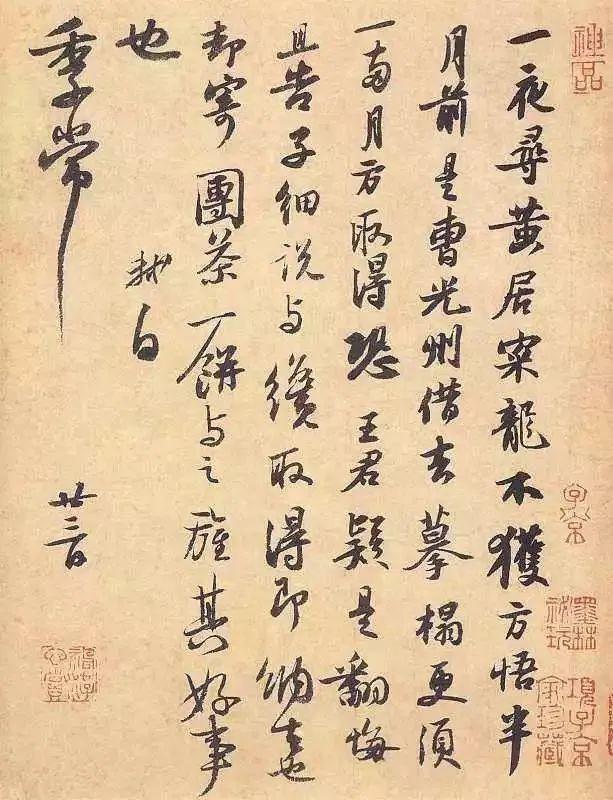 一夜尋黃居寀龍不獲方悟半
月前是曹光州借去摹榻更須
一兩月方取得恐王君疑是翻悔
且告子細說與纔取得即納去也
却寄團茶一餅與之旌其好事
也
軾白
季常
廿三日
子京
墨林祕玩
項子京家珍藏